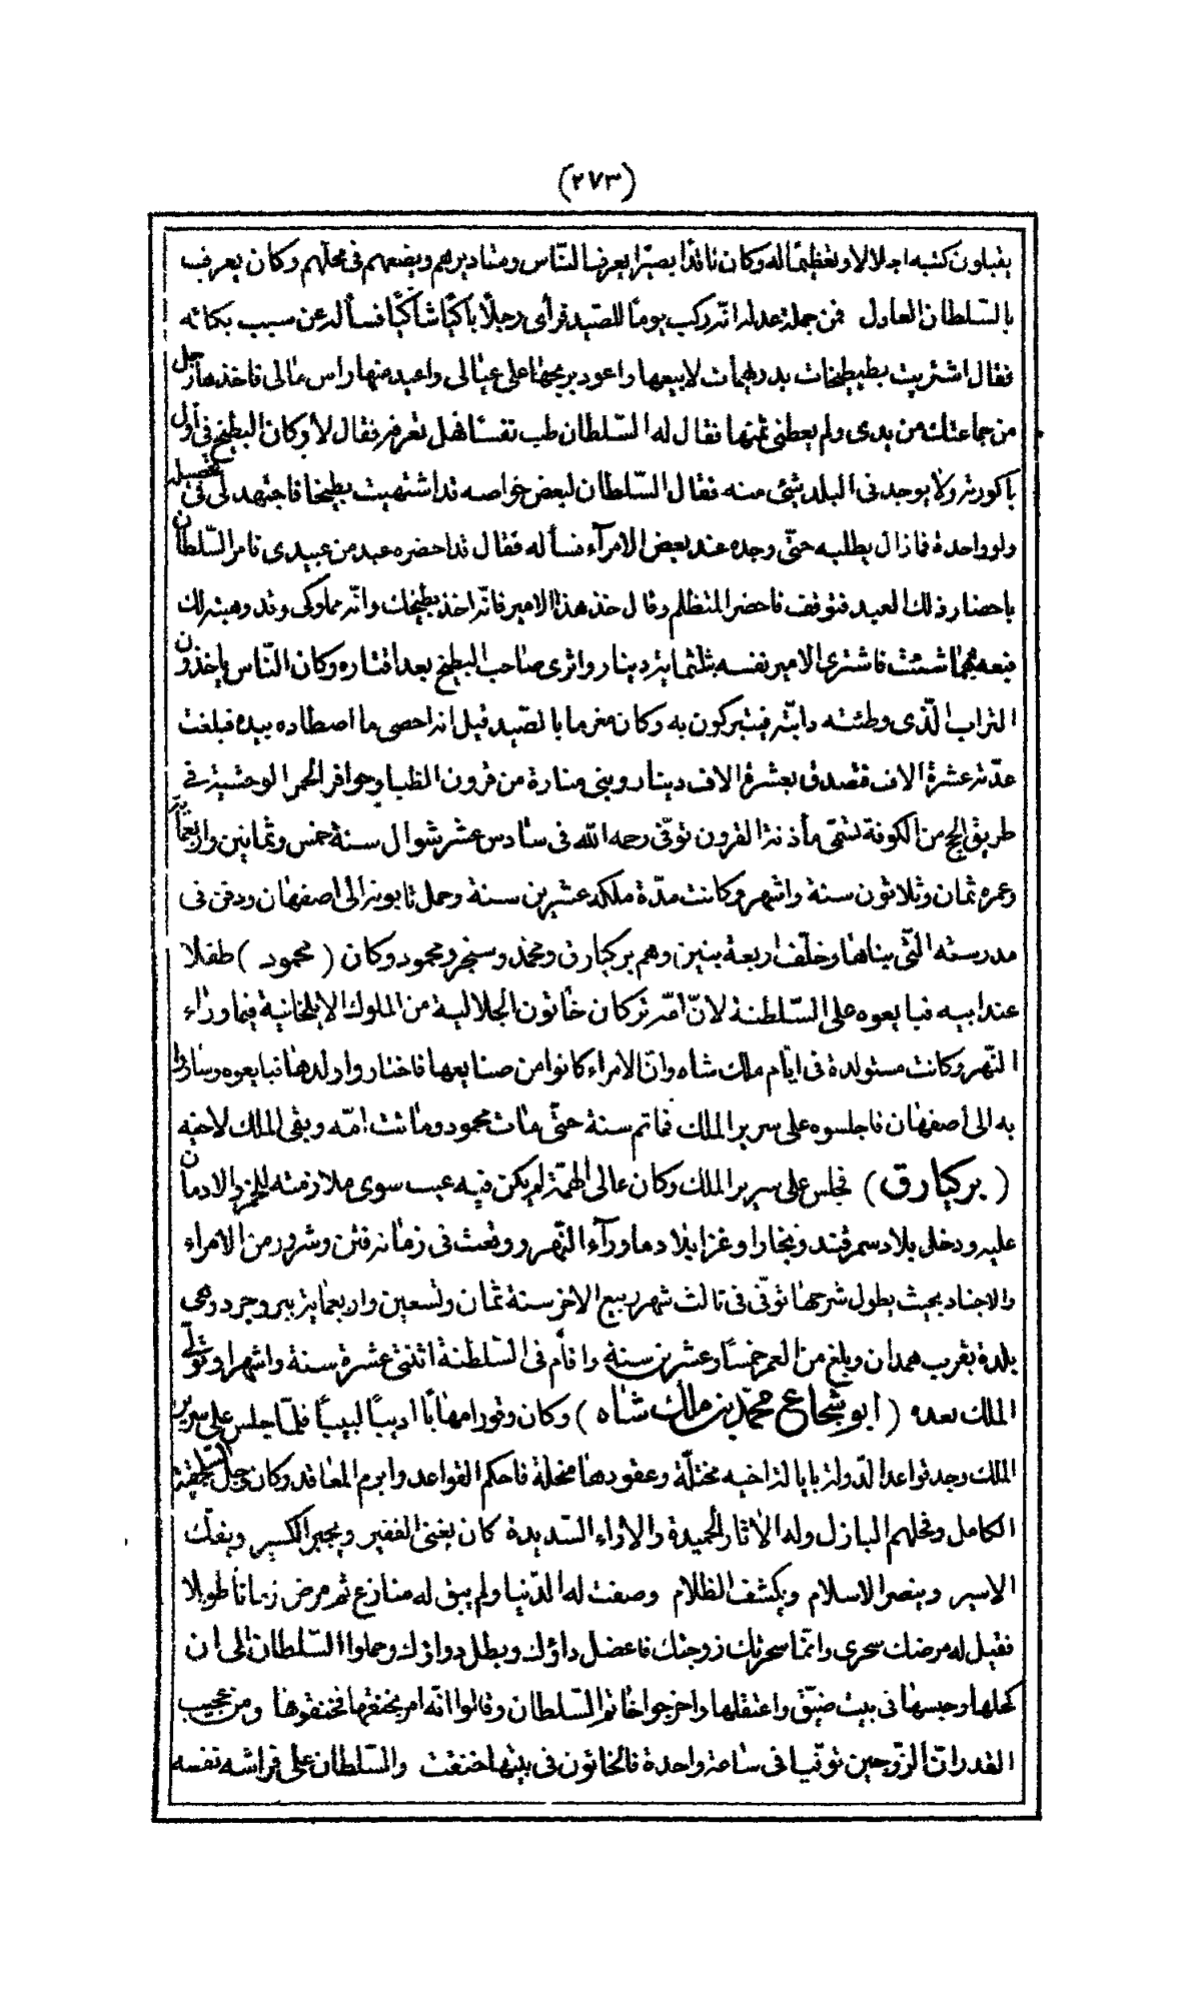 (٢٧٣)
يقبلون كتبه اجلالا وتعظيما له وكان ناقدا بصيرا يعرف الناس ومقاديرهم ويضعهم فى محلهم وكان يعرف
بالسّلطان العادل فمن جملة عدله انّه ركب يوما للصّيد فرأى رجلا باكيا شاكيا فسأله عن سبب بكائه
فقال اشتريت بطيطيخات بدريهمات لابيعها واعود بربحها على عيالى واعيد منها راس مالى فاخذها رجل
من جماعتك من يدى ولم يعطنى ثمنها فقال له السّلطان طب نفسا فهل تعرفه فقال لا وكان البطيخ فى أول
باكورته ولا يوجد فى البلد شئ منه فقال السّلطان لبعض خواصه قد اشتهيت بطيخا فاجتهد لى فى تحصيله
ولو واحدة فما زال يطلبه حتّى وجده عند بعض الامرآء فسأله فقال قد احضره عبد من عبيدى فامر السّلطان
باحضار ذلك العبد فتوقف فاحضر المتظلم وقال خذ هذا الامير فانّه اخذ بطيخك وانّه مملوكى وقد وهبته لك
فبعه بمهما شئت فاشترى الامير نفسه بثلثمائة دينار واثرى صاحب البطيخ بعد اقتاره وكان النّاس ياخذون
التراب الّذى وطئته دابّته فيتبركون به وكان مغرما بالصّيد قيل انه احصى ما اصطاده بيده فبلغت
عدّته عشرة الاف فتصدق بعشرة الاف دينار وبنى منارة من قرون الظباء وحوافر الحمر الوحشية فى
طريق الحج من الكوفة تسمّى مأذنة القرون توفّى رحمه اللّه فى سادس عشر شوال سنة خمس وثمانين واربعمائة
وعمره ثمان وثلاثون سنة واشهر وكانت مدّة ملكه عشرين سنة وحمل تابوته الى اصفهان ودفن فى
مدرسته الّتى بناها وخلّف اربعة بنين وهم بركيارق ومحمّد وسنجر ومحمود وكان ( محمود ) طفلا
عند ابيه فبايعوه على السّلطنة لانّ امّه تركان خاتون الجلالية من الملوك الايلخانية فيما وراء
النّهر وكانت مستولدة فى ايّام ملك شاه وانّ الامراء كانوا من صنايعها فاختاروا ولدها فبايعوه وسارت
به الى أصفهان فاجلسوه على سرير الملك فما تم سنة حتّى مات محمود وماتت امّه وبقى الملك لاخيه
( بركيارق ) فجلس على سرير الملك وكان عالى الهمّة لم يكن فيه عيب سوى ملازمته للخمر والادمان
عليه ودخل بلاد سمرقند وبخارا وغزا بلاد ما ورآء النّهر ووقعت فى زمانه فتن وشرور من الامراء
والاجناد بحيث يطول شرحها توفّى فى ثالث شهر ربيع الاخر سنة ثمان وتسعين واربعمائة ببروجرد وهى
بلدة بقرب همدان وبلغ من العمر خمسا وعشرين سنة واقام فى السّلطنة اثنتى عشرة سنة واشهرا وتولّى
الملك بعده ( ابو شجاع محمّد بن ملك شاه ) وكان وقورا مهابا اديبا لبيبا فلمّا جلس على سرير
الملك وجد قواعد الدّولة بايالة اخيه مختلّة وعقودها محلة فاحكم القواعد وابرم المعاقد وكان رجل السلجقية
الكامل وفحلهم البازل وله الاثار الحميدة والاراء السّديدة كان يغنى الفقير ويجبر الكسير ويفك
الاسير وينصر الاسلام ويكشف الظلام وصفت له الدّنيا ولم يبق له منازع ثم مرض زمانا طويلا
فقيل له مرضك سحرى وانّما سحرتك زوجتك فاعضل داؤك وبطل دواؤك وحملوا السّلطان الى ان
كحلها وحبسها فى بيت ضيّق واعتقلها واخرجوا خاتم السّلطان وقالوا انّه امر بخنقها فخنقوها ومن عجيب
القدر انّ الزّوجين توفّيا فى ساعة واحدة فالخاتون فى بيتها خنقت والسّلطان على فراشه نفسه